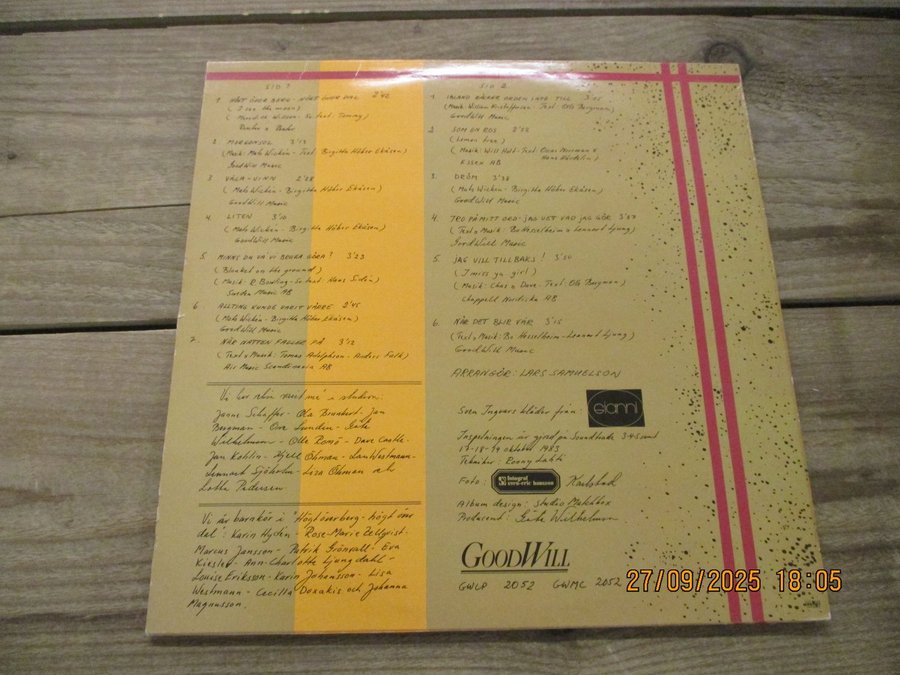 SID 1
1 HÖGT ÖVER BERG - HÖGT ÖVER DAL 2'42
(I see the moon)
(Musik: M Willson - Sv text: Tommy)
Reuter & Reuter
2 MORGONSOL 3'13
(Musik: Mats Wicken - Text: Birgitta Höber Ekåsen)
GoodWill Music
3. VÅGA - VINN 2'28
(Mats Wicken - Birgitta Höber Ekåsen)
GoodWill Music
4. LITEN 3'10
(Mats Wicken - Birgitta Höber Ekåsen)
GoodWill Music
5 MINNS DU VA VI BRUKA GÖRA? 3'23
(Blanket on the ground)
(Musik: R Bowling - Sv. text: Hans Sidén)
Sweden Music AB
6. ALLTING KUNDE VARIT VÄRRE 2'45
(Mats Wicken - Birgitta Höber Ekåsen)
GoodWill Music
7. NÄR NATTEN FALLER PÅ 3'12
(Text & Musik: Tomas Adolphson - Anders Falk)
Air Music Scandinavia AB
Vi har också varit me' i studion:
Janne Schaffer - Ola Brunkert - Jan
Bergman - Ove Lunden - Göte
Wilhelmson - Olle Romö - Dave Castle
Jan Kohlin - Kjell Öhman - Lars Westmann -
Lennart Sjöholm - Lisa Öhman och
Lotta Pedersen
Vi är barnkör i "Högt över berg - högt över
dal": Karin Hydén - Rose-Marie Zellqvist -
Marcus Jansson - Patrik Grönvall - Eva
Kiesler - Ann-Charlotte Ljungdahl -
Louise Eriksson - Karin Johansson - Lisa
Westmann - Cecilia Doxakis och Johanna
Magnusson.
SID 2
1. IBLAND RÄCKER ORDEN INTE TILL 3'05
(Musik: William Kristoffersen - Text: Olle Bergman)
GoodWill Music
2 SOM EN ROS 2'52
(Lemon tree)
(Musik: Will Holt - Text: Owe Norrman &
Hans Kördelin)
ESSEX AB
3. DRÖM 3'38
(Mats Wicken - Birgitta Höber Ekåsen)
GoodWill Music
4. TRO PÅ MITT ORD - JAG VET VAD JAG GÖR 3'53
(Text & Musik: Bo Hesselheim & Lennart Ljung)
GoodWill Music
5. JAG VILL TILLBAKS! 3'50
(I miss ya girl)
(Musik: Chas & Dave - Text: Olle Bergman)
Chappell Nordiska AB
6. NÄR DET BLIR VÅR 3'15
(Text & Musik: Bo Hesselheim - Lennart Ljung)
GoodWill Music
ARRANGÖR: LARS SAMUELSON
Sven Ingvars kläder från: Gianni
Inspelningen är gjord på Soundtrade 3-4-5 samt
17-18-19 oktober 1983
Tekniker: Ronny Lahti
Foto: fotograf sven-eric hansson Karlstad
Album design: Studio Matchbox
Producent: Göte Wilhelmson
GOODWILL
GWLP 2052 GWMC 2052
27/09/2025 18:05